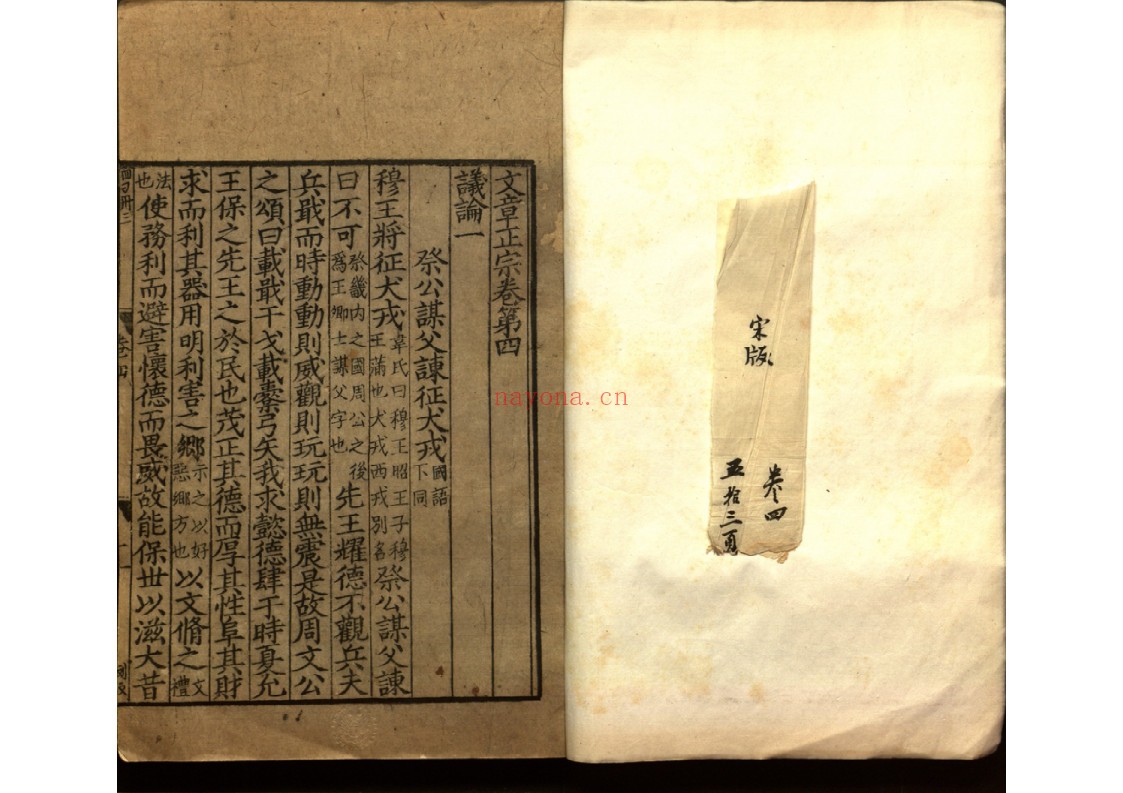 宋版
卷四
五拾三頁
文章正宗卷第四
議論一
祭公謀父諫征犬戎國語下同
穆王將征犬戎韋氏曰穆王昭王子穆王蒲也犬戎西戎别名祭公謀父諫
曰不可祭畿内之國周公之後爲王卿士謀父字也先王耀德不觀兵夫
兵戢而時動動則威觀則玩玩則無震是故周文公
之頌曰載戢干戈載櫜弓矢我求懿德肆于時夏允
王保之先王之於民也茂正其德而厚其性阜其財
求而利其器用明利害之鄉示之以好惡鄉方也以文脩之文禮
法也使務利而避害懷德而畏威故能保丗以滋大昔
卷四
nayona.cn